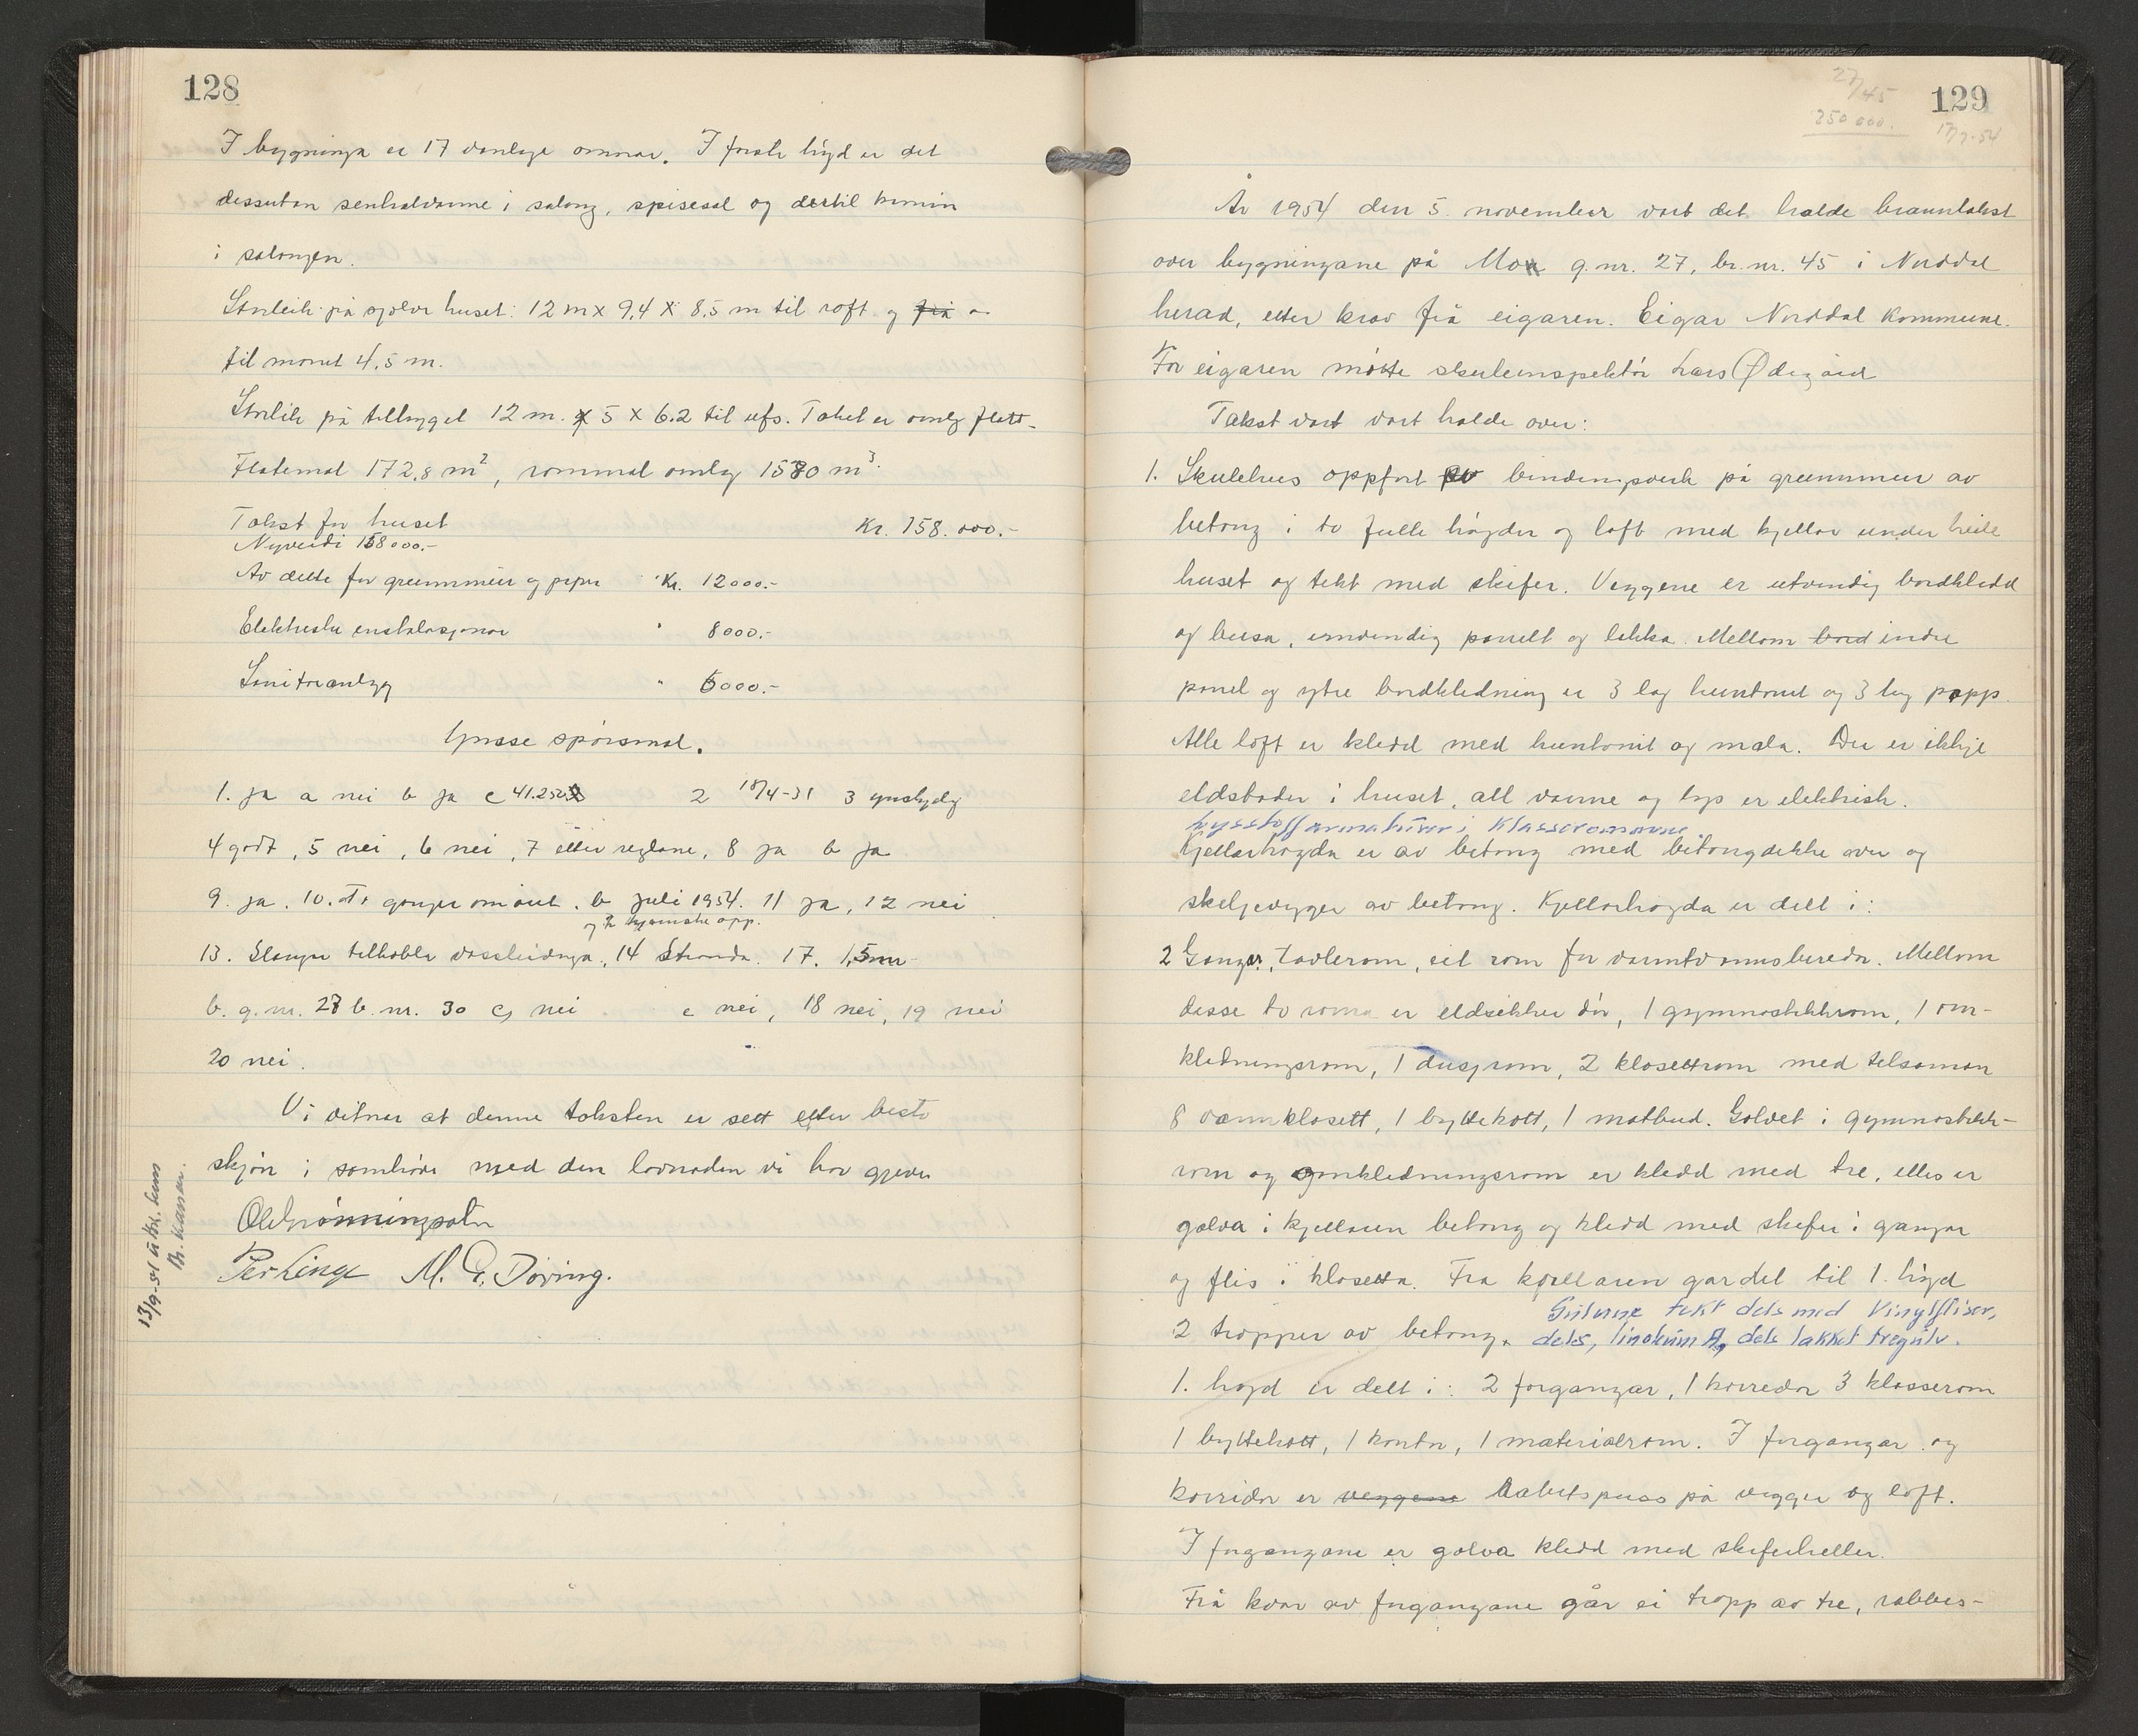 128
I bygninga er 17 vanlege omnar. I fyrste høgd er det
dessutan sentralvarme i salong, spisesal og dertil kamin
i salongen.
Storleik på sjølve huset: 12 m x 9,4 x 8,5 m til roft og frå
til mønet 4,5 m.
Storleik på tilbygget 12 m. x 5 x 6.2 til ufs. Taket er omlag flatt.
Flatemål 172,8 m², rommål omlag 1580 m³.
Takst for huset Kr. 158.000.-
Nyverdi 158000.-
Av dette for grunnmur og pipe Kr. 12000.-
Elektriske installasjonar " 8000.-
Sanitæranlegg " 6000.-
Ymse spørsmål.
1. ja a nei b ja c 41.250 2 18/4-31 3 ymskyelg
4 godt, 5 nei, 6 nei, 7 etter reglane, 8 ja b ja
9. ja. 10. To gonger om året. b juli 1954. 11 ja, 12 nei
og 2 kjemiske app.
13. Slange tilkobla vassleidnga, 14 Stranda. 17. 1,5 m
b. g.nr. 27 b.nr. 30 c, nei e nei, 18 nei, 19 nei
20 nei.
Vi vitnar at denne taksten er sett etter beste
skjøn i samhøve med den lovnaden vi har gjeve
Ole Grønningsæter
Per Linge M. G. Døving.
13/9-
129
27/45
250 000.
17/7-54
År 1954 den 5. november vart det halde branntakst
over bygningane på Mo g.nr. 27, br.nr. 45 i Norddal
herad, etter krav frå eigaren. Eigar Norddal Kommune.
For eigaren møtte skuleinspektør Lars Ødegård
Takst vart vart halde over:
1. Skulehus oppført av bindingsverk på grunnmur av
betong i to fulle høgder og loft med kjellar under heile
huset og tekt med skifer. Veggene er utvendig bordkledd
og beisa, innvendig panelt og lakka. Mellom bord indre
panel og ytre bordkledning er 3 lag huntonit og 3 lag papp.
Alle loft er kledd med huntonit og mala. Der er ikkje
eldstader i huset, all varme og lys er elektrisk.
Lysstoffarmaturer i klasseromma.
Kjellarhøgda er av betong med betongdekke over og
skeljevegger av betong. Kjellarhøgda er delt i:
2 Gangar, tavlerom, eit rom for varmtvannsberedar. Mellom
desse to romma er eldsikker dør, 1 gymnastikkrom, 1 om-
kledningsrom, 1 dusjrom, 2 klosettrom med tilsaman
8 vannklosett, 1 byttekott, 1 matbud. Golvet i gymnastikk-
rom og omkledningsrom er kledd med tre, elles er
golva i kjellaren betong og kledd med skifer i gangar
og flis i klosetta. Fra kjellaren går det til 1. høgd
2 tropper av betong.
Gulvene tekt dels med Vinylfliser,
dels, linoleum og dels lakket tregulv.
1. høgd er delt i: 2 forgangar, 1 korredor 3 klasserom
1 byttekott, 1 kontor, 1 materialrom. I forgangar og
korridor er veggene Rabitspuss på vegger og loft.
I forgangane er golva kledd med skiferheller.
Frå kvar av forgangane går ei tropp av tre, rabbes-